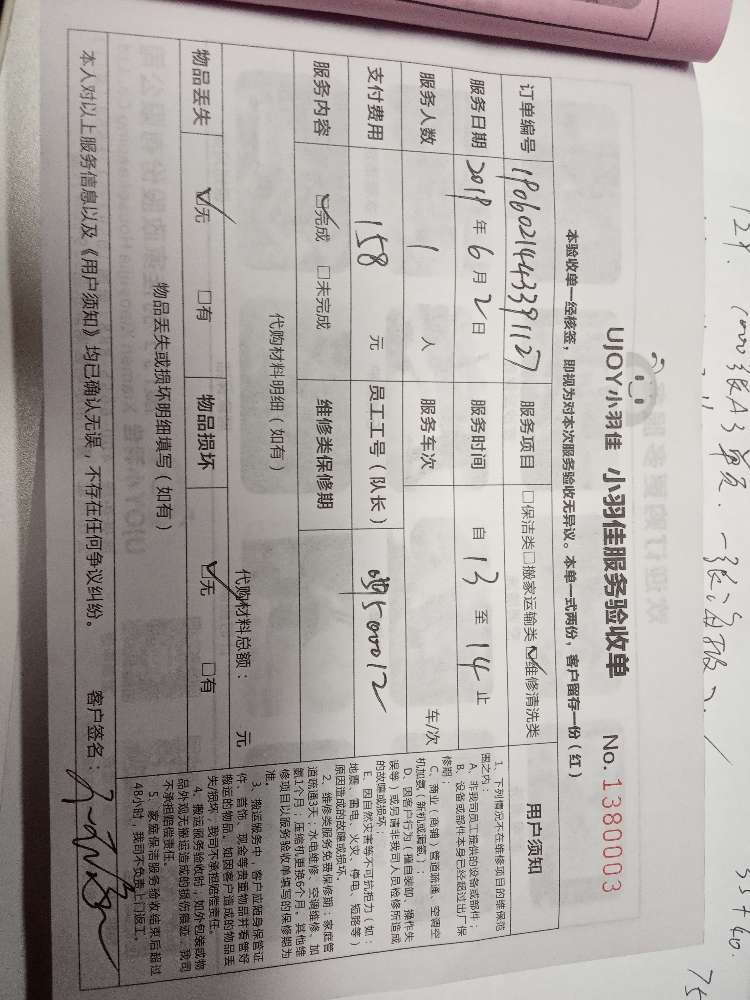 UJOY小羽佳 小羽佳服务验收单 No.1380003
本验收单一经核签,即视为对本次服务验收无异议。本单一式两份,客户留存一份(红)
订单编号 服务项目 □保洁类□搬家运输类☑维修清洗类
服务日期 2019年6月2日 服务时间 自 13 至 14 止
服务人数 1 人 服务车次 车/次
支付费用 158 元 员工工号(队长)
服务内容 ☑完成 □未完成 维修类保修期
代购材料明细(如有)
代购材料总额: 元
物品丢失 ☑无 □有 物品损坏 ☑无 □有
物品丢失或损坏明细填写(如有)
本人对以上服务信息以及《用户须知》均已确认无误,不存在任何争议纠纷。 客户签名:
用户须知
1、下列情况不在维修项目的维保范
围之内:
A、非我司员工提供的设备或部件;
B、设备或部件本身已经超过出厂保
修期;
C、商业(商铺)管道疏通、空调空
机加氨(新机或漏氨);
D、因客户行为(擅自装卸、操作失
误等)或另请非我司人员检修所造成
的故障或损坏;
E、因自然灾害等不可抗拒力(如:
地震、雷电、火灾、停电、短路等)
原因造成的故障或损坏。
2、维修类服务免费保修期:家庭管
道疏通3天;水电维修、空调维修、加
氨1个月;压缩机更换6个月。其他维
修项目以服务验收单填写的保修期为
准。
3、搬运服务中,客户应随身保管证
件、首饰、现金等贵重物品并看管好
搬运的物品,如因客户造成的物品丢
失/损坏,我司不承担赔偿责任。
4、搬运服务验收时,如外包装或物
品外观无搬运造成的损伤痕迹,我司
不承担赔偿责任。
5、家庭保洁服务验收结束后超过
48小时,我司不负责上门返工。